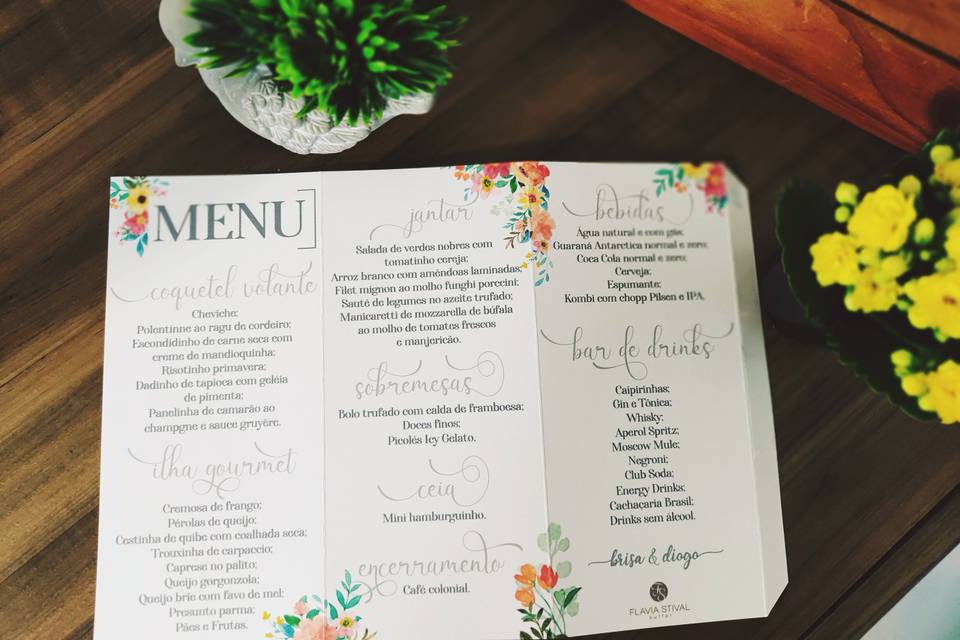 MENU
coquetel volante
Cheviche;
Polentinne ao ragu de cordeiro;
Escondidinho de carne seca com
creme de mandioquinha;
Risotinho primavera;
Dadinho de tapioca com geléia
de pimenta;
Panelinha de camarão ao
champgne e sauce gruyère.
ilha gourmet
Cremosa de frango;
Pérolas de queijo;
Cestinha de quibe com coalhada seca;
Trouxinha de carpaccio;
Caprese no palito;
Queijo gorgonzola;
Queijo brie com favo de mel;
Presunto parma;
Pães e Frutas.
jantar
Salada de verdes nobres com
tomatinho cereja;
Arroz branco com amêndoas laminadas;
Filet mignon ao molho funghi porccini;
Sauté de legumes no azeite trufado;
Manicaretti de mozzarella de búfala
ao molho de tomates frescos
e manjericão.
sobremesas
Bolo trufado com calda de framboesa;
Doces finos;
Picolés Icy Gelato.
ceia
Mini hamburguinho.
encerramento
Café colonial.
bebidas
Água natural e com gás;
Guaraná Antarctica normal e zero;
Coca Cola normal e zero;
Cerveja;
Espumante;
Kombi com chopp Pilsen e IPA.
bar de drinks
Caipirinhas;
Gin e Tônica;
Whisky;
Aperol Spritz;
Moscow Mule;
Negroni;
Club Soda;
Energy Drinks;
Cachaçaria Brasil;
Drinks sem álcool.
brisa & diogo
FLAVIA STIVAL
buffet